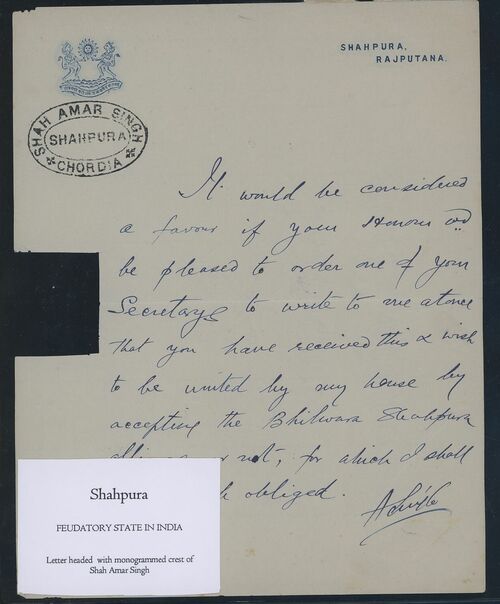 SHAHPURA,
RAJPUTANA.
SHAH AMAR SINGH
SHAHPURA
CHORDIA
It would be considered
a favour if your Honour wd
be pleased to order one of your
Secretarys to write to me atonce
that you have received this & wish
to be united by my house by
accepting the Bhilwara Shahpura
or not, for which I shall
obliged.
Shahpura
FEUDATORY STATE IN INDIA
Letter headed with monogrammed crest of
Shah Amar Singh